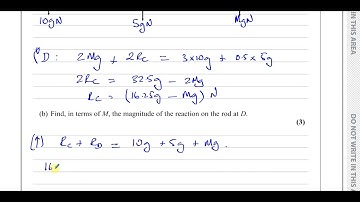 10gN 5gN MgN
D: 2Mg + 2Rc = 3x10g + 0.5 x 5g
2Rc = 32.5g - 2Mg
Rc = (16.25g - Mg) N
(b) Find, in terms of M, the magnitude of the reaction on the rod at D.
(3)
(↑) Rc + RD = 10g + 5g + Mg.
16
IN THIS AREA
DO NOT WRITE IN THIS